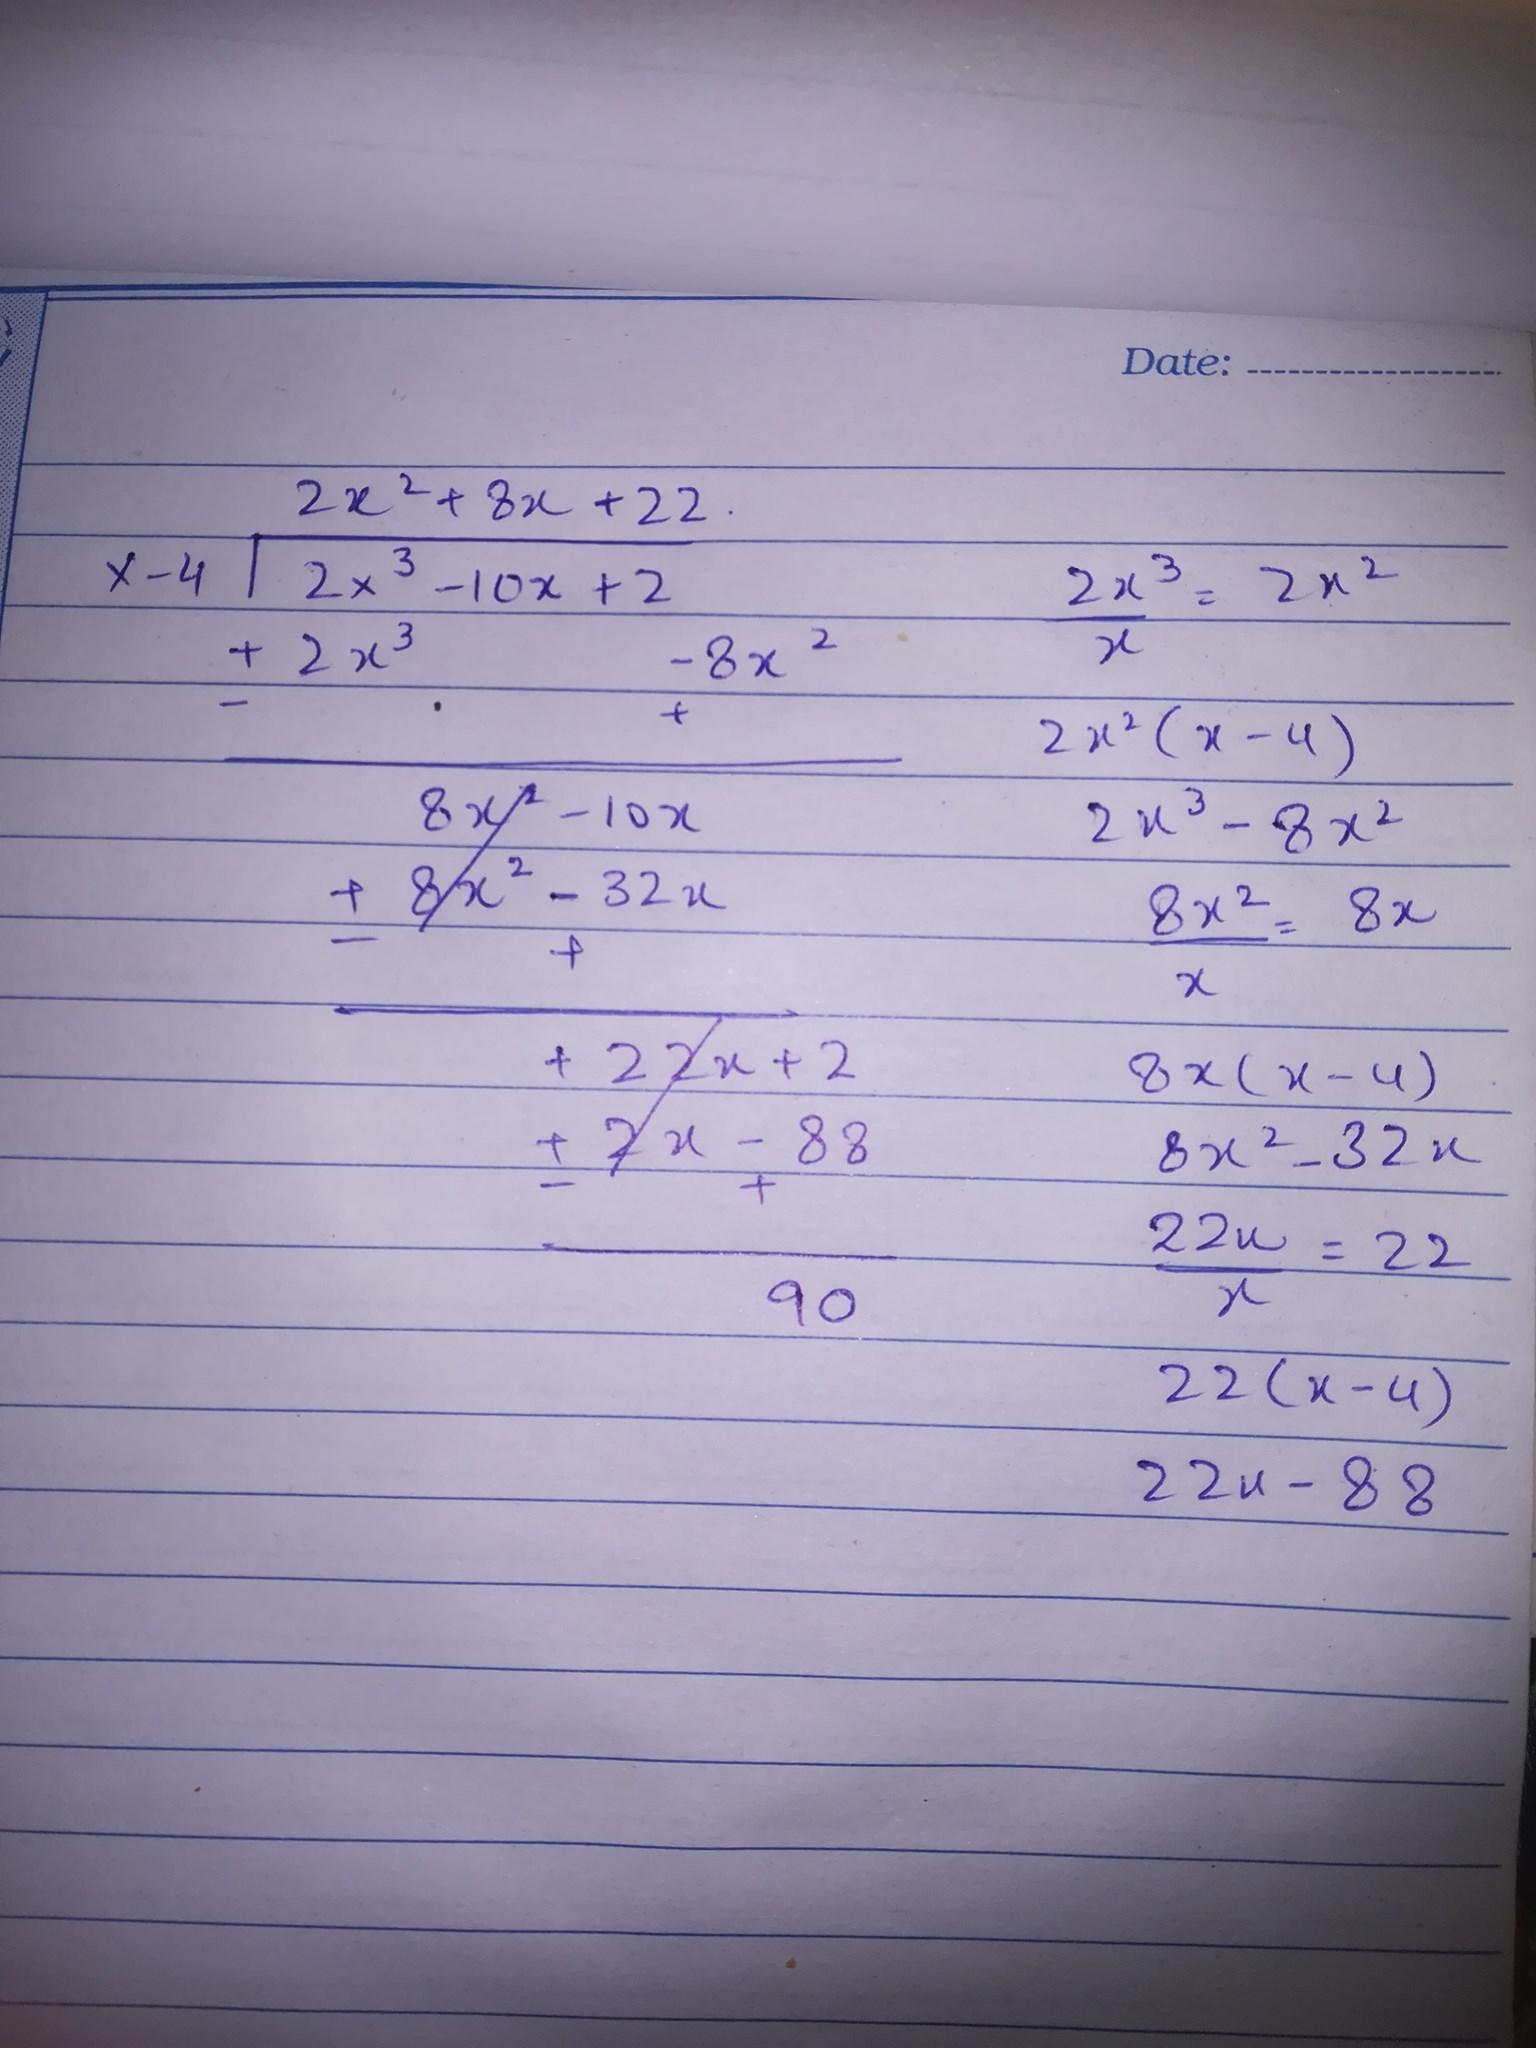 Date:
2x² + 8x + 22.
x-4 | 2x³ -10x + 2
+ 2x³ -8x²
- +
8x² - 10x
+ 8x² - 32x
- +
+ 22x + 2
+ 2x - 88
- +
90
2x³/x = 2x²
2x² (x - 4)
2x³ - 8x²
8x²/x = 8x
8x(x-4)
8x² - 32x
22x/x = 22
22(x-4)
22x - 88